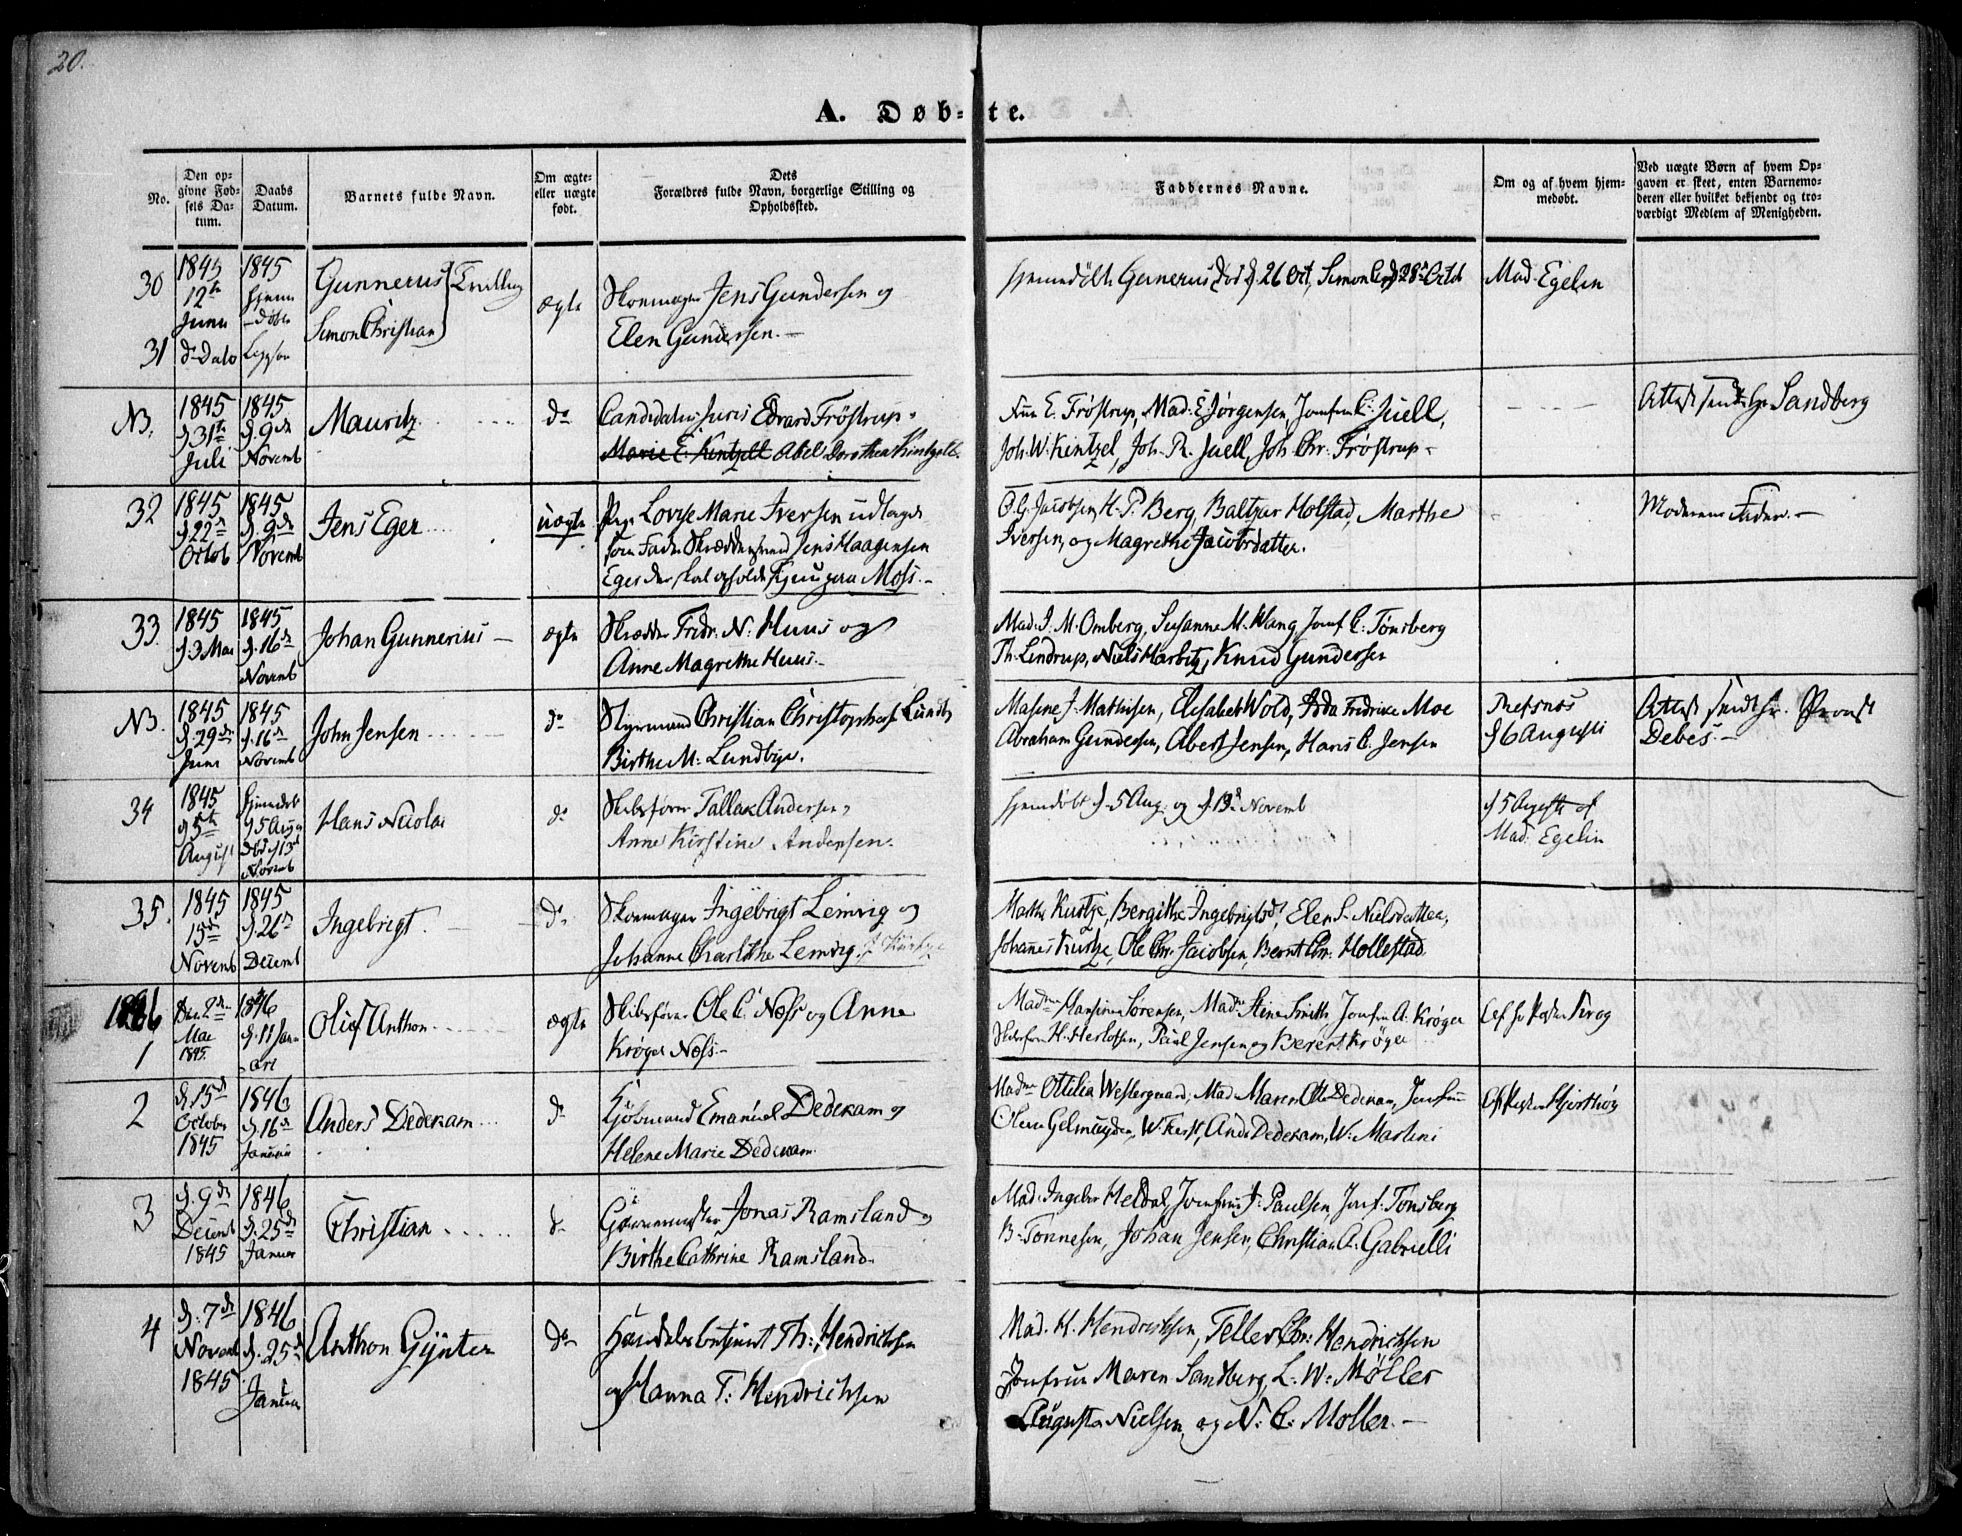 20.
A. Døb-te.
No.
Den op-
givne Fød-
sels Da-
tum.
Daabs
Datum.
Barnets fulde Navn.
Om ægte-
eller uægte
født.
Dets
Forældres fulde Navn, borgerlige Stilling og
Opholdssted.
Faddernes Navne.
Om og af hvem hjem-
medøbt.
Ved uægte Børn af hvem Op-
gaven er skeet, enten Barnemo-
deren eller hvilket bekjendt og tro-
værdigt Medlem af Menigheden.
30
31
1845
12te
Juni
1845
Gunnerus
Simon Christian
ægte
Skomager Jens Gundersen og
Elen Gundersen.
Gunerus død d. 26 Oct, Simon 28de Octob
Mad. Egelin
NB.
1845
d. 31te
Juli
1845
d. 9de
Novemb
Mauritz
do
Candidatus Juris Edvard Frøstrup
Marie E. Kintzell Abel Dorothea Kintzell.
Frue E. Frøstrup, Mad. E Jørgensen, Jomfru C. Juell,
Joh. W. Kintzel, Joh. R. Juell, Joh. Chr. Frøstrup
Attest sendt Hr Sandberg
32
1845
d. 22de
Octob
1845
d. 9de
Novemb
Jens Eger
uægte
Pige Lovise Marie Iversen udlagde
som Fader Skræddersvend Jens Haagensen
Eger der skal opholde sig paa Moss.
O. G. Jacobsen, H. P. Berg, Baltzar Holstad, Marthe
Iversen, og Magrethe Jacobsdatter.
Moderens Fader.
33.
1845
d. 3 Mai
1845
d. 16de
Novemb
Johan Gunnerius
ægte
Skrædder Fredr. N. Huus og
Anne Magrethe Huus.
Mad. I. M. Omberg, Susanne M. Wang, Jomf C. Tønsberg
Th. Lindrup, Niels Marbitz, Knud Gundersen
NB.
1845
d. 29de
Juni
1845
d. 16de
Novemb
John Jensen
do
Styrmand Christian Christophersen Lundby
Birthe M. Lundbye.
Masine J. Mathisen, Elisabet Wold, Ada Fredrike Moe
Abraham Gundersen, Abert Jensen, Hans C. Jensen
d 6 Augusti
Attest sendt Hr. Provst
Debes.
34
1845
d 5te
August
d 5 Aug
død d 13de
Novemb
Hans Nicolai
do
Skibsfører Tallak Andersen,
Anne Kirstine Andersen.
Hjemdøbt d. 5 Aug. og d. 13de Novemb
d 5 Auguste af
Mad. Egelin
35.
1845
15de
Novemb
1845
d. 26de
Decemb
Ingebrigt.
do
Skomager Ingebrigt Lemvig og
Johanne Charlothe Lemvig
Marthe Kurtze, Bergithe Ingebrigtsd, Elen S. Nielsdatter,
Johannes Kurtze, Ole Chr. Jacobsen, Bernt Chr. Hollestad.
1846
1
Den 2de
Mai
1845.
1846
d. 11 Janu
ari
Oluf Anthon
ægte
Skibsfører Ole C. Næss og Anne
Krøger Næss
Madme Hansine Sørensen, Madme Stine Smith, Jomfru A. Krøger
Skibsfører H. Herlofsen, Paul Jensen og Berent Krøger
Af Hr Pastor Krog
2
d. 15de
October
1845
1846
d. 16de
Januar
Anders Dedekam
do
Kjøbmand Emanuel Dedekam og
Helene Marie Dedekam.
Madme Ottilia Westergaard, Mad Maren Dedekam, Jomfru
Oline Gelmuyden, W. Herst, Ands Dedekam, W. Martini
Af Pastor Hjorthøy
3
d. 9de
Decemb
1845
1846
d. 25de
Januar
Christian
do
Garvermester Jonas Ramsland og
Birthe Cathrine Ramsland.
Mad. Ingebor Heldal, Jomfrue J. Paulsen, Jomf. Tønsberg
B. Tønnesen, Johan Jensen, Christian A. Gabrielli
4
d. 7de
Novemb
1845
1846
d. 25de
Januar
Anthon Gÿnter
do
Handelsbetjent Th. Hendrichsen
og Hanna T. Hendrichsen
Mad. H. Hendrichsen, Teller Chr. Hendrichsen
Jomfrue Maren Sandberg, L. W. Møller
Augusta Nielsen, og N. C. Møller.